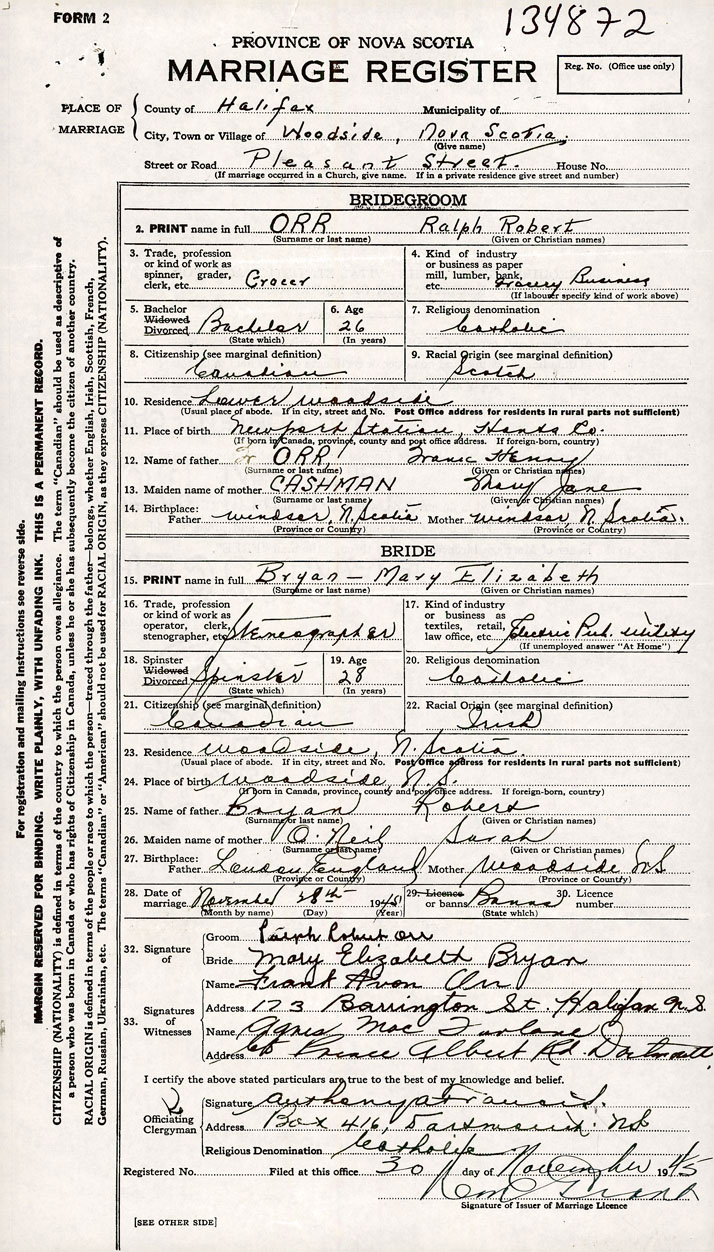 FORM 2
134872
PROVINCE OF NOVA SCOTIA
MARRIAGE REGISTER
Reg. No. (Office use only)
PLACE OF MARRIAGE
County of Halifax Municipality of
City, Town or Village of Woodside, Nova Scotia,
(Give name)
Street or Road Pleasant Street. House No.
(If marriage occurred in a Church, give name. If in a private residence give street and number)
BRIDEGROOM
2. PRINT name in full ORR Ralph Robert
(Surname or last name) (Given or Christian names)
3. Trade, profession or kind of work as spinner, grader, clerk, etc. Grocer
4. Kind of industry or business as paper mill, lumber, bank, etc. Grocery Business
(If labourer specify kind of work above)
5. Bachelor Widowed Divorced Bachelor
(State which)
6. Age 26
(In years)
7. Religious denomination Catholic
8. Citizenship (see marginal definition) Canadian
9. Racial Origin (see marginal definition) Scotch
10. Residence Lower Woodside
(Usual place of abode. If in city, street and No. Post Office address for residents in rural parts not sufficient)
11. Place of birth Newport Station, Hants Co.
(If born in Canada, province, county and post office address. If foreign-born, country)
12. Name of father ORR, Henry
(Surname or last name) (Given or Christian names)
13. Maiden name of mother CASHMAN Mary Jane
(Surname or last name) (Given or Christian names)
14. Birthplace: Father Windsor, N. Scotia Mother Windsor, N. Scotia.
(Province or Country) (Province or Country)
BRIDE
15. PRINT name in full Bryan - Mary Elizabeth
(Surname or last name) (Given or Christian names)
16. Trade, profession or kind of work as operator, clerk, stenographer, etc. Stenographer
17. Kind of industry or business as textiles, retail, law office, etc. Electric Pub. Utility
(If unemployed answer "At Home")
18. Spinster Widowed Divorced Spinster
(State which)
19. Age 28
(In years)
20. Religious denomination Catholic
21. Citizenship (see marginal definition) Canadian
22. Racial Origin (see marginal definition) Irish
23. Residence Woodside, N. Scotia.
(Usual place of abode. If in city, street and No. Post Office address for residents in rural parts not sufficient)
24. Place of birth Woodside, N.S.
(If born in Canada, province, county and post office address. If foreign-born, country)
25. Name of father Bryan Robert
(Surname or last name) (Given or Christian names)
26. Maiden name of mother O. Neil Sarah
(Surname or last name) (Given or Christian names)
27. Birthplace: Father London, England Mother Woodside NS
(Province or Country) (Province or Country)
28. Date of marriage November 28th 1945
(Month by name) (Day) (Year)
29. Licence or banns Banns
(State which)
30. Licence number
32. Signature of
Groom Ralph Robert Orr
Bride Mary Elizabeth Bryan
33. Signatures of Witnesses
Name Frank Avon Orr
Address 173 Barrington St. Halifax N.S.
Name Agnes Mac Farlane
Address Prince Albert Rd. Dartmouth
I certify the above stated particulars are true to the best of my knowledge and belief.
Officiating Clergyman
Signature Anthony
Address Box 416, Dartmouth. NS
Religious Denomination Catholic
Registered No. Filed at this office 30 day of November 1945
Signature of Issuer of Marriage Licence
[SEE OTHER SIDE]
For registration and mailing instructions see reverse side.
MARGIN RESERVED FOR BINDING. WRITE PLAINLY, WITH UNFADING INK. THIS IS A PERMANENT RECORD.
CITIZENSHIP (NATIONALITY) is defined in terms of the country to which the person owes allegiance. The term "Canadian" should be used as descriptive of
a person who was born in Canada or who has rights of Citizenship in Canada, unless he or she has subsequently become the citizen of another country.
RACIAL ORIGIN is defined in terms of the people or race to which the person—traced through the father—belongs, whether English, Irish, Scottish, French,
German, Russian, Ukrainian, etc. The terms "Canadian" or "American" should not be used for RACIAL ORIGIN, as they express CITIZENSHIP (NATIONALITY).